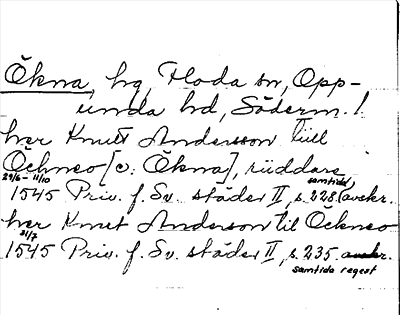 Ökna, hg, Floda sn, Opp-
unda hd, Söderm. l.
her Knutt Andersson tiill
Öchneo [ɔ: Ökna], riiddare
29/6 – 11/10 samtida
1545 Priv. f. Sv. städer II, s. 228. (avskr.
her Knut Anderson til Öckneo
31/7
1545 Priv. f. Sv. städer II, s. 235. avskr.
samtida regest